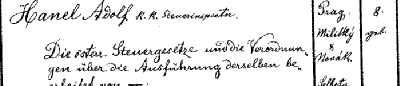 Hanel Adolf k. k. Steuerinspector.
Die österr. Steuergesetze und die Verordnun-
gen über die Ausführung derselben be-
arbeitet von —:
Prag
Mikotky
&
Novák.
8.